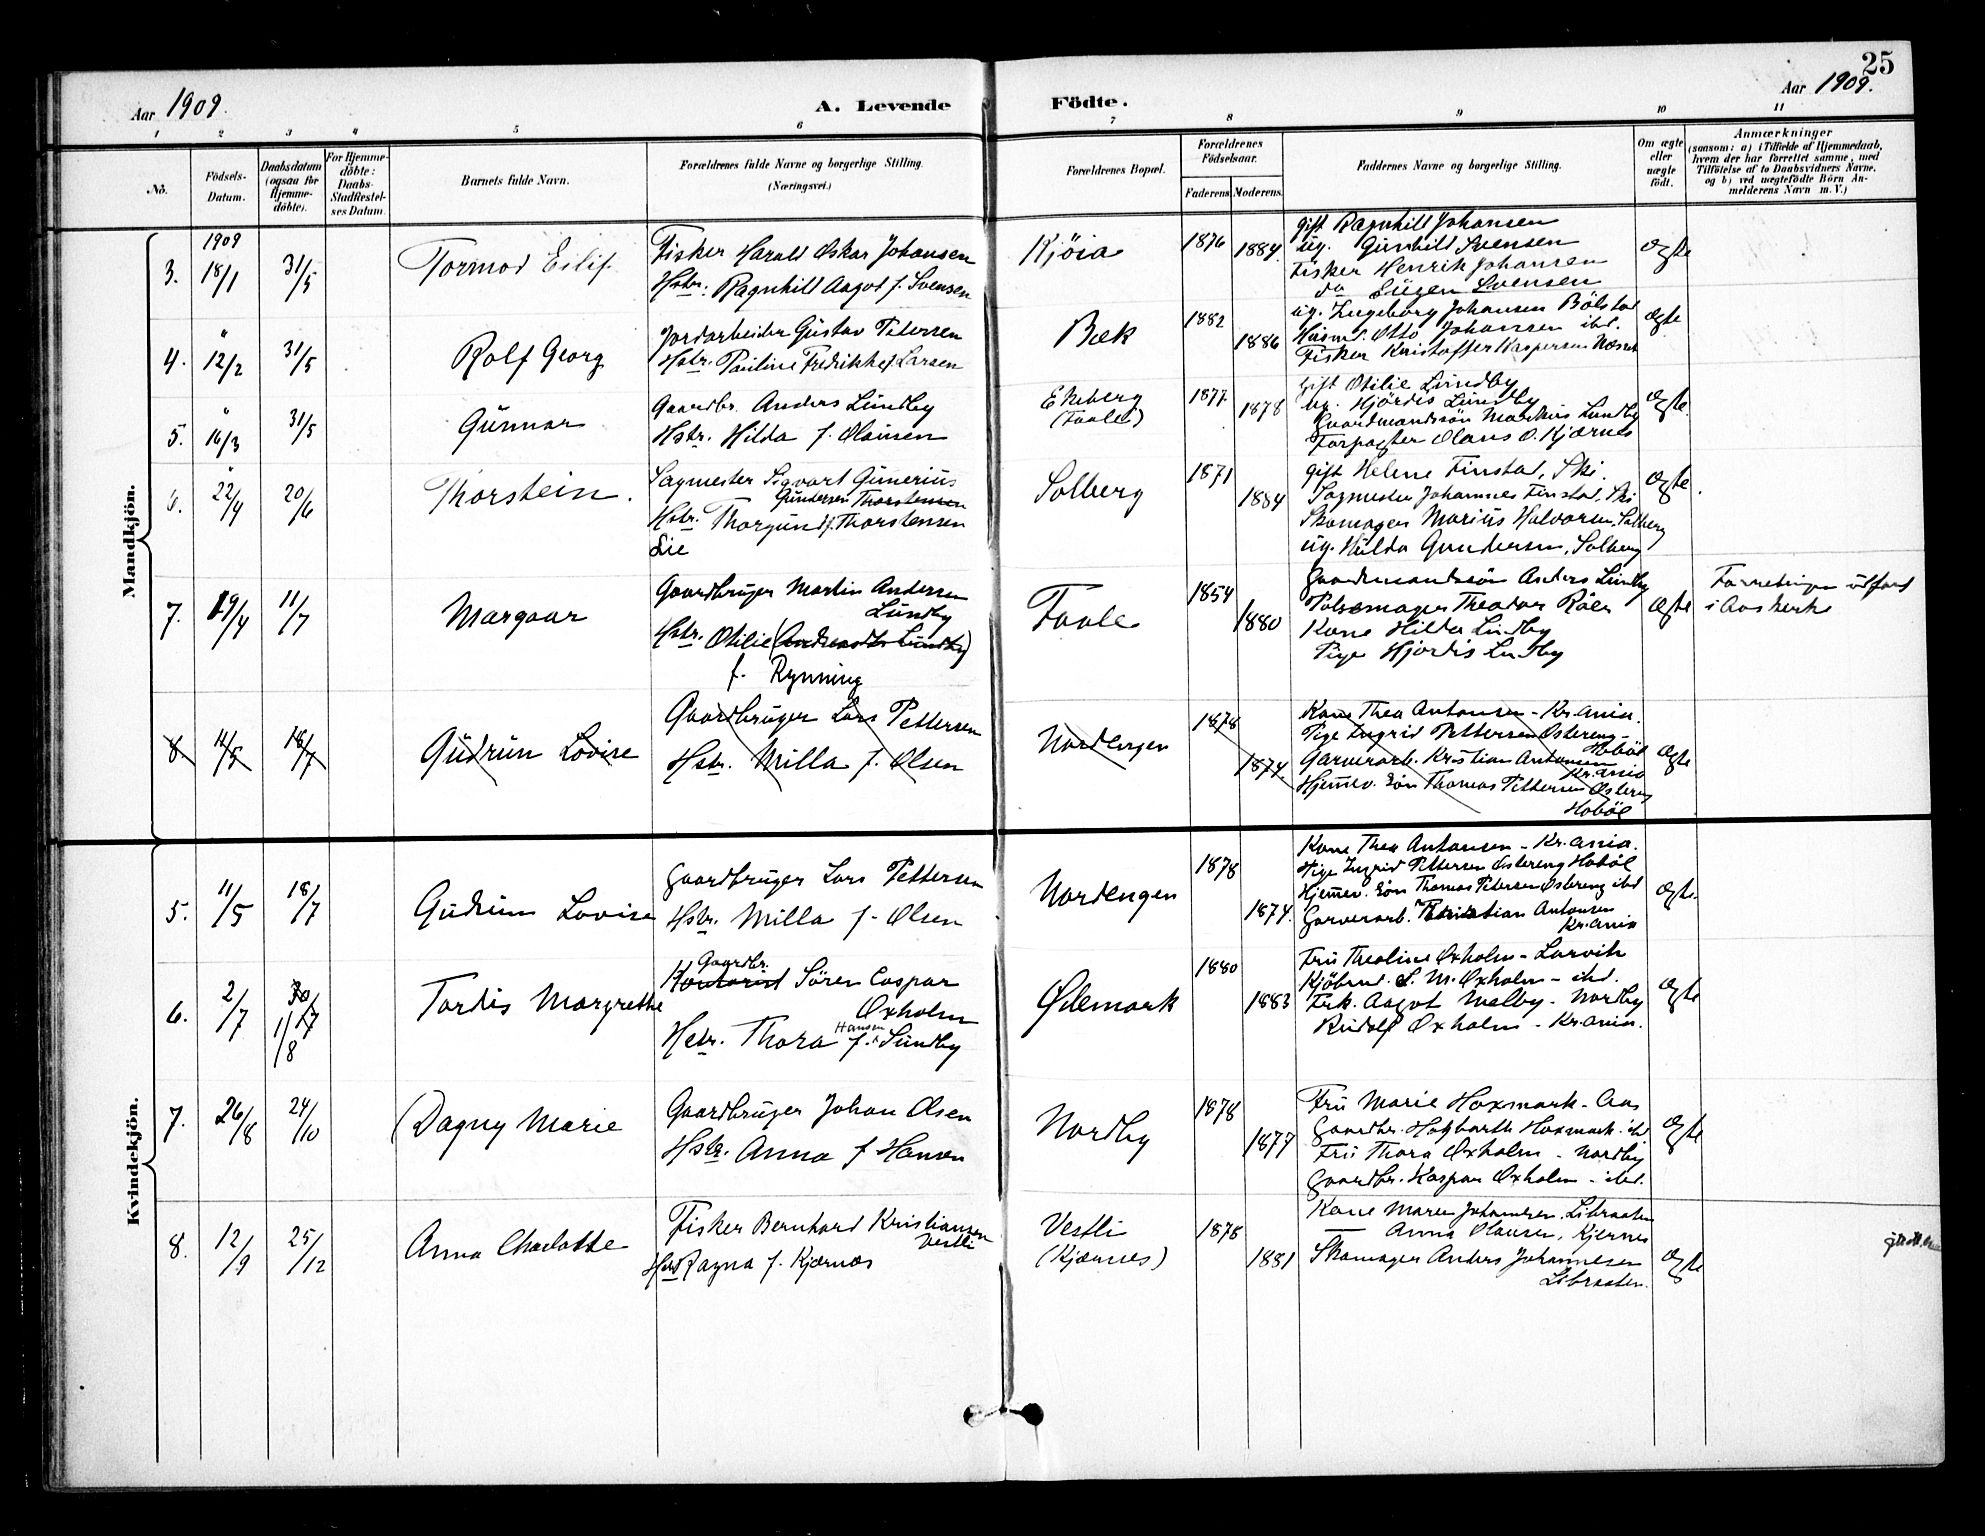 25
Aar 1909.
A. Levende
Födte.
Aar 1909.
1 2 3 4 5 6 7 8 9 10 11
No.
Födsels-
Datum.
Daabsdatum
(ogsaa for
Hjemme-
döbte).
For Hjemme-
döbte:
Daabs-
Stadfæstel-
ses Datum.
Barnets fulde Navn.
Forældrenes fulde Navne og borgerlige Stilling.
(Næringsvei.)
Forældrenes Bopæl.
Forældrenes
Födselsaar.
Faderens
Moderens.
Faddernes Navne og borgerlige Stilling.
Om ægte
eller
uægte
födt.
Anmærkninger
(saasom: a) i Tilfælde af Hjemmedaab,
hvem der har forrettet samme, med
Tilföielse af to Daabsvidners Navne,
og b) ved uægtefödte Börn An-
melderens Navn m. V.)
Mandkjön.
1909
3. 18/1 31/5 Tormod Eilif.
Fisker Harald Oskar Johansen
Hstr. Ragnhild Aagot f. Svensen
Kjöia 1876 1884.
gift Ragnhild Johansen
ug. Gunhild Svensen
Fisker Henrik Johansen
do Eugen Svensen
Ægte
4. " 12/2 31/5 Rolf Georg
Jordarbeider Gustav Petersen
Hstr. Pauline Fredrikke f. Larsen
Bæk 1882 1886
ug. Ingeborg Johansen Bölstad
Husmd. Otto Johansen ibd.
Fisker Kristoffer Kaspersen Næsset
Ægte
5. " 16/3 31/5 Gunnar
Gaardbr. Anders Lundby
Hstr. Hilda f. Olausen
Ekeberg
(Faale) 1877 1878
Gift Otilie Lundby
ug. Hjördis Lundby
Gaardmandssön Markus Lundby
Forpagter Olaus O. Kjærnes
Ægte.
6. " 22/4 20/6 Thorstein.
Sagmester Sigvart Gunerius
Gundersen Thorstensen
Hstr. Thorgund f. Thorstensen
Lie
Solberg 1871 1884
gift Helene Finstad, Ski.
Sagmester Johannes Finstad, Ski
Skomager Marius Halvorsen, Solberg
ug. Hulda Gundersen, Solberg
Ægte.
7. 19/4 11/7 Margaar
Gaardbruger Martin Andersen
Lundby
Hstr. Otilie (Lundby)
f. Rynning
Faale 1854 1880
Gaardmandssön Anders Lundby
Pölsemager Theodor Röer
Kone Hilda Lundby
Pige Hjordis Lundby
Ægte
Forretningen udfört
i Aas kirke
8 11/5 18/7 Gudrun Lovise
Gaardbruger Lars Pettersen
Hstr. Milla f. Olsen
Nordengen 1878 1874.
Kone Thea Antonsen - Kr.ania.
Pige Ingrid Pettersen Östereng -
Hoböl
Garverarb. Kristian Antonsen
Kr.ania
Hjemmev. Sön Thomas Pettersen Östereng
Hoböl
Ægte
Kvindekjön.
5. 11/5 18/7 Gudrun Lovise
Gaardbruger Lars Pettersen
Hstr. Milla f. Olsen
Nordengen 1878 1874.
Kone Thea Antonsen - Kr.ania.
Pige Ingrid Pettersen Östereng Hoböl
Hjemmev. Sön Thomas Petersen Östereng ibd
Garverarb. Kristian Antonsen
Kr.ania
Ægte.
6. 2/7 30/7 1/8 Tordis Margrethe
Gaardbr.
Kontorist Sören Caspar
Oxholm
Hstr. Thora f. Hansen Sundby
Ødemark 1880 1883
Fru Theoline Oxholm - Larvik
Kjöbmd. S. M. Oxholm - ibd.
Frk. Aagot Melby - Nordby
Rudolf Oxholm - Kr.ania.
Ægte
7. 26/8 24/10 Dagny Marie
Gaardbruger Johan Olsen
Hstr. Anna f. Hansen
Nordby 1878 1877
Fru Marie Hoxmark - Aas
Gaardbr. Hagbarth Hoxmark - ibd
Fru Thora Oxholm - Nordby
Gaardbr. Kaspar Oxholm - ibd.
Ægte
8. 12/9 25/12 Anna Charlotte
Fisker Bernhard Kristiansen
Vestli
Hstr Ragna f. Kjærnæs
Vestli
(Kjærnes) 1878 1881
Kone Maren Johansen, Libraaten
— Anna Olausen, Kjernes
Skomager Anders Johannesen
Libraaten.
Ægte